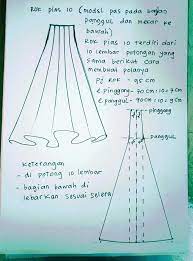 Rok pias 10 (model pas pada bagian
panggul dan mekar ke
bawah)
Rok pias 10 terdiri dari
10 lembar potongan yang
sama berikut cara
membuat polanya
Pj rok = 95 cm
l. pinggang = 70 cm : 10 = 7 cm
l. panggul = 90 cm : 10 = 9 cm
pinggang
panggul
Keterangan
- di potong 10 lembar
- bagian bawah di
lebarkan sesuai selera